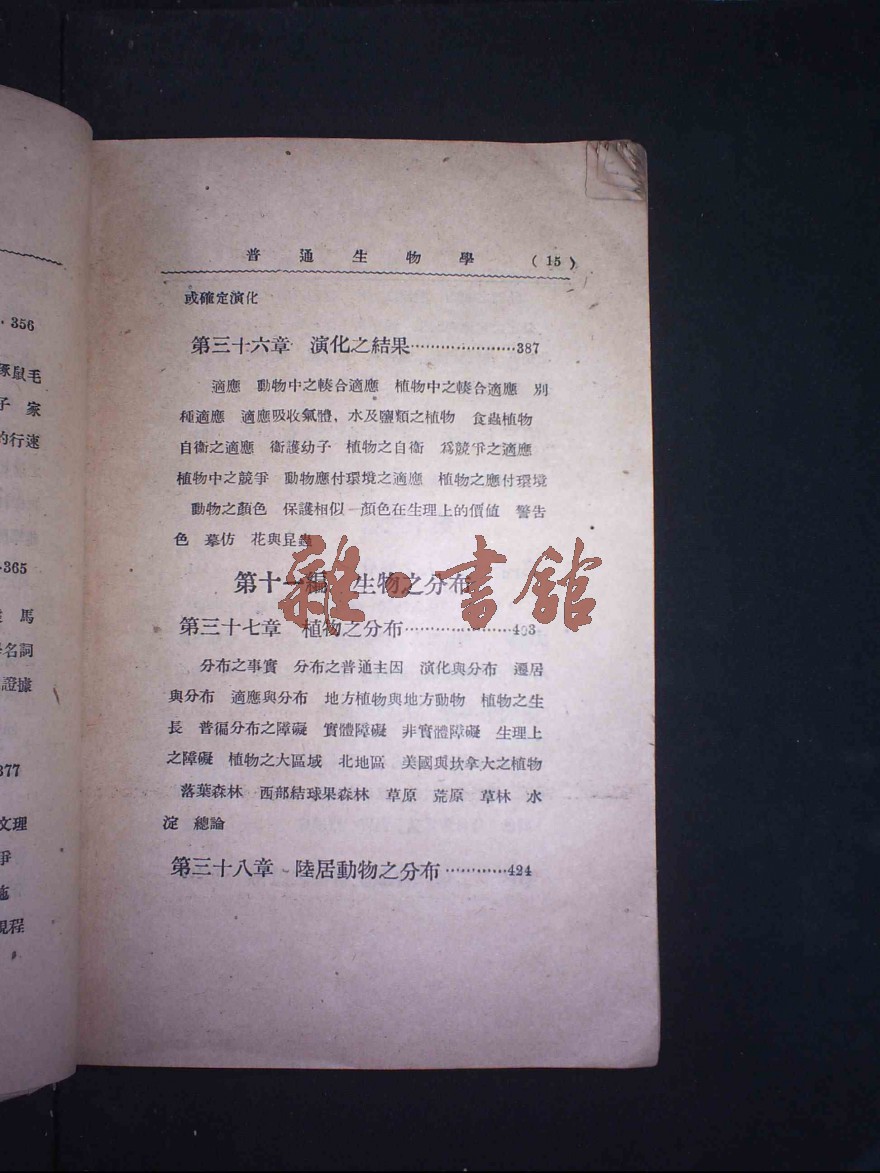 普通生物學 (15)
或確定演化
第三十六章 演化之結果·····················387
適應 動物中之輳合適應 植物中之輳合適應 別
種適應 適應吸收氣體,水及鹽類之植物 食蟲植物
自衛之適應 衞護幼子 植物之自衞 爲競爭之適應
植物中之競爭 動物應付環境之適應 植物之應付環境
動物之顏色 保護相似 顏色在生理上的價値 警告
色 摹仿 花與昆蟲
第十一編 生物之分布
第三十七章 植物之分布·····················403
分布之事實 分布之普通主因 演化與分布 遷居
與分布 適應與分布 地方植物與地方動物 植物之生
長 普徧分布之障礙 實體障礙 非實體障礙 生理上
之障礙 植物之大區域 北地區 美國與坎拿大之植物
落葉森林 西部結球果森林 草原 荒原 草林 水
淀 總論
第三十八章 陸居動物之分布············424
雜·書館
356
鼠毛
子 家
的行速
365
馬
名詞
證據
377
文理
爭
施
程